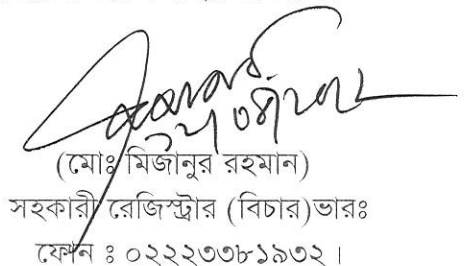 (মোঃ মিজানুর রহমান)
সহকারী রেজিস্ট্রার (বিচার)ভারঃ
ফোন ঃ ০২২২৩৩৮১৯৩২।